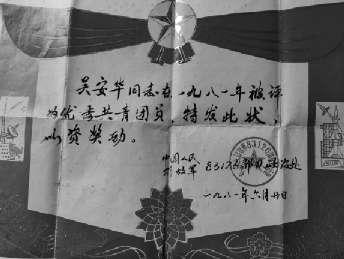 吴安华同志在一九八一年被评
为优秀共青团员，特发此状，
以资奖励。
中国人民
解放军
政治处
一九八一年六月